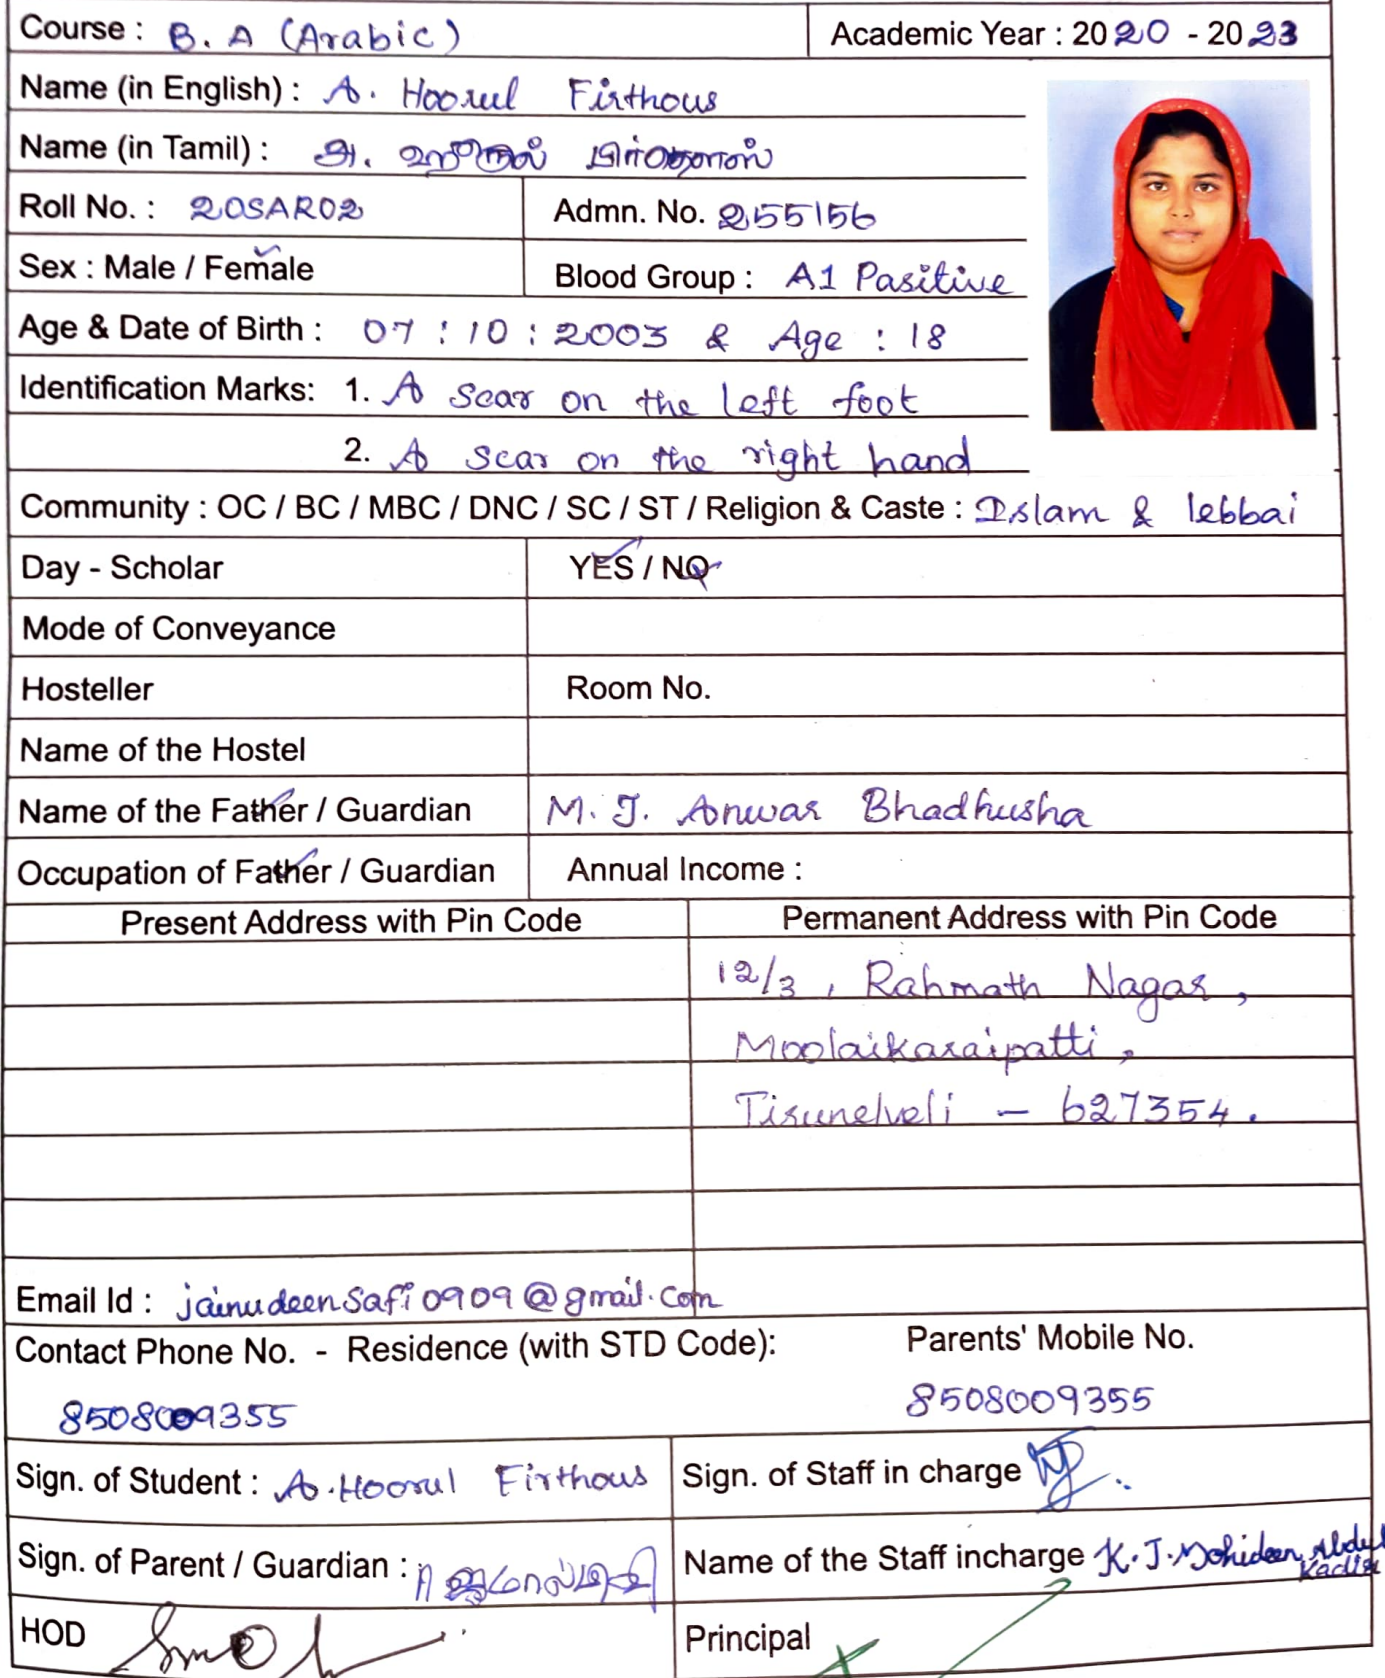 Course : B. A (Arabic) Academic Year : 2020 - 2023
Name (in English) : A. Hoorul Firthous
Name (in Tamil) : அ. ஹூருல் பிர்தௌஸ்
Roll No. : 20SAR02 Admn. No. 255156
Sex : Male / Female Blood Group : A1 Pasitive
Age & Date of Birth : 07 : 10 : 2003 & Age : 18
Identification Marks: 1. A Scar on the left foot
2. A Scar on the right hand
Community : OC / BC / MBC / DNC / SC / ST / Religion & Caste : Islam & lebbai
Day - Scholar YES / NO
Mode of Conveyance
Hosteller Room No.
Name of the Hostel
Name of the Father / Guardian M. J. Anwar Bhadhusha
Occupation of Father / Guardian Annual Income :
Present Address with Pin Code Permanent Address with Pin Code
12/3 , Rahmath Nagar ,
Moolaikaraipatti ,
Tirunelveli - 627354 .
Email Id : jainudeensafi0909@gmail.com
Contact Phone No. - Residence (with STD Code): Parents' Mobile No.
8508009355 8508009355
Sign. of Student : A. Hoorul Firthous Sign. of Staff in charge
Sign. of Parent / Guardian : Name of the Staff incharge K. J. Mohideen Abdul
Kadir
HOD Principal